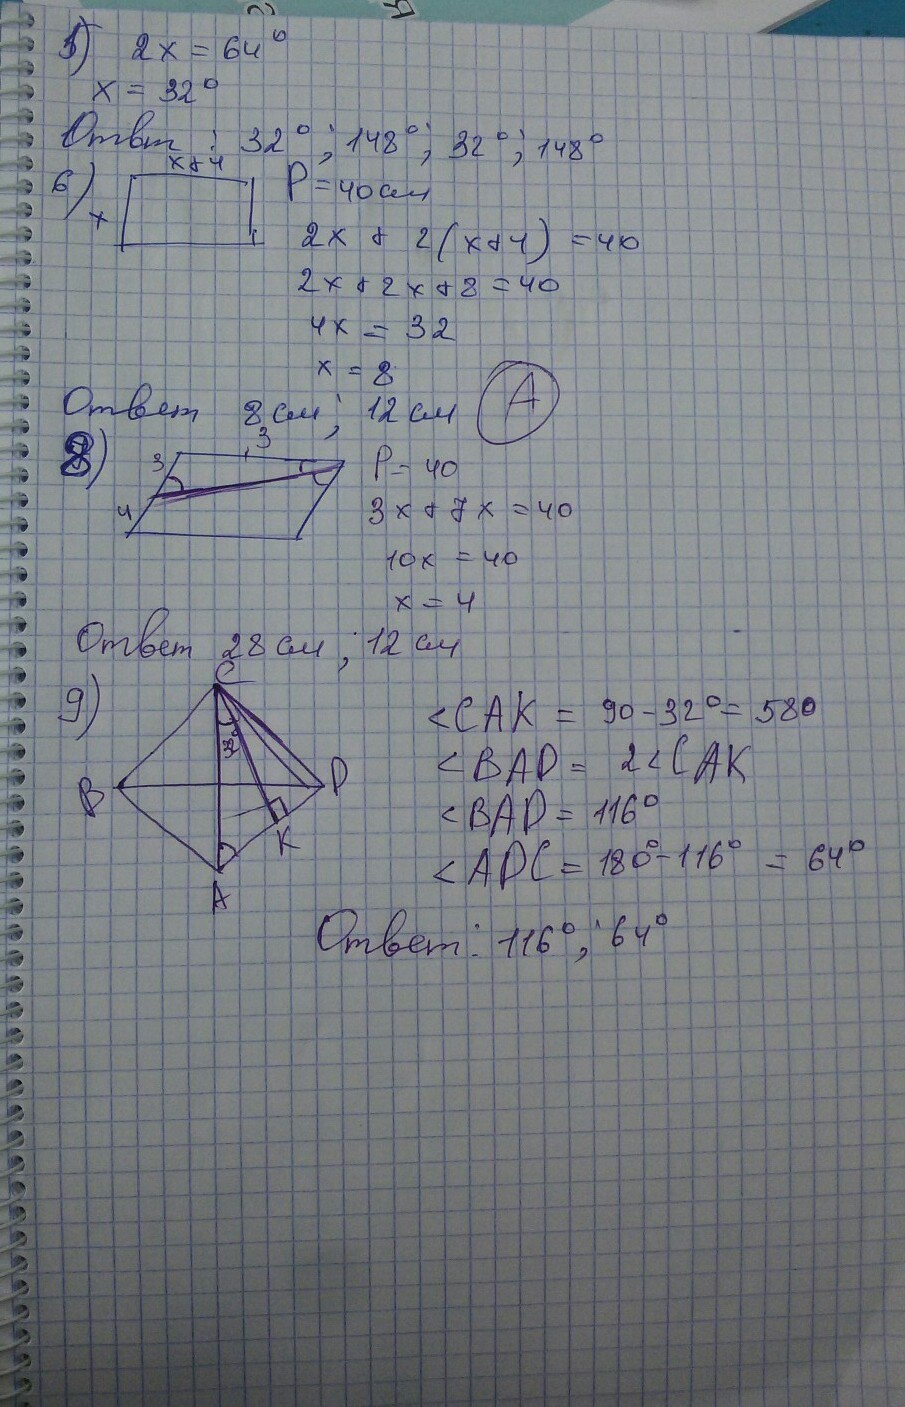 5) 2x = 64°
x = 32°
Ответ : 32°; 148°; 32°; 148°
6) x+4 P = 40см
x
2x + 2(x+4) = 40
2x + 2x + 8 = 40
4x = 32
x = 8
Ответ 8см; 12см А
8) 3 3 4 P = 40
3x + 7x = 40
10x = 40
x = 4
Ответ 28см; 12см
9) C B D K A 32°
<CAK = 90 - 32° = 580
<BAD = 2<CAK
<BAD = 116°
<ADC = 180° - 116° = 64°
Ответ: 116°; 64°